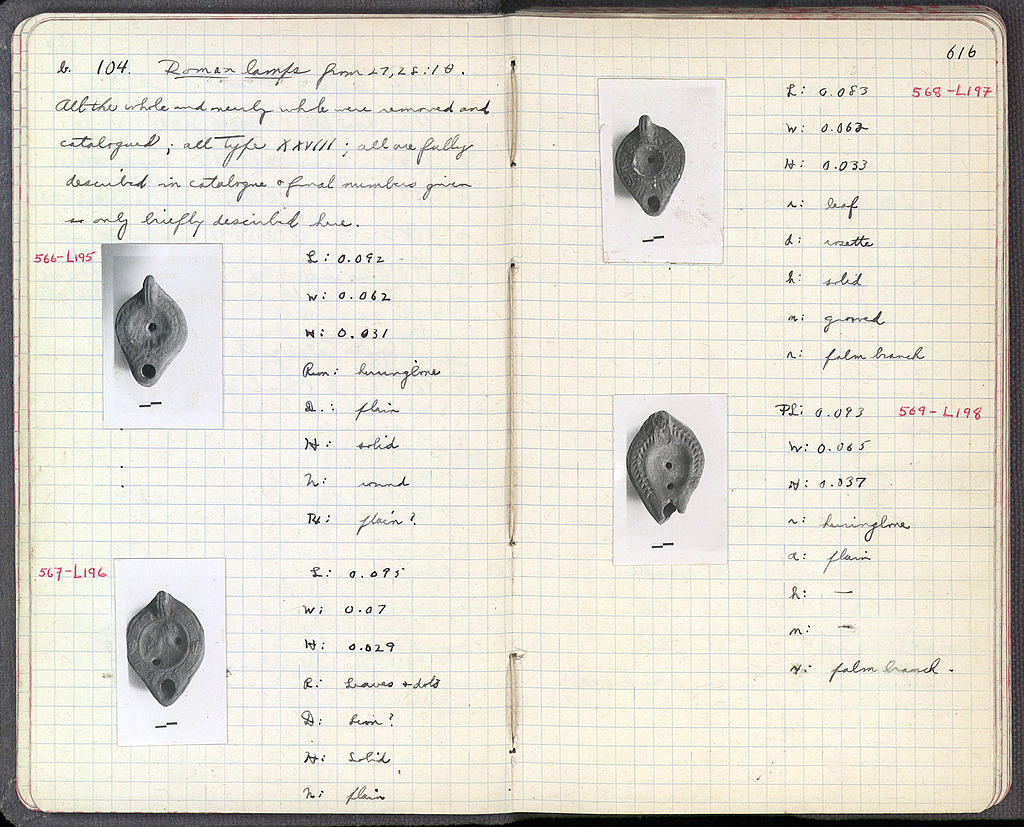 b. 104. Roman lamps from 27,28:1θ.
All the whole and nearly whole were removed and
catalogued; all type XXVIII; all are fully
described in catalogue & final numbers given
so only briefly described here.
566-L195
L: 0.092
W: 0.062
H: 0.031
Rim: herringbone
D.: plain
H: solid
N: round
R: plain?
567-L196
L: 0.095
W: 0.07
H: 0.029
R: Leaves & dots
D: Lion?
H: Solid
N: plain
616
568-L197
L: 0.083
W: 0.062
H: 0.033
r: leaf
d: rosette
h: solid
n: grooved
r: palm branch
569-L198
PL: 0.093
W: 0.065
H: 0.037
r: herringbone
d: plain
h: —
n: —
r: palm branch.